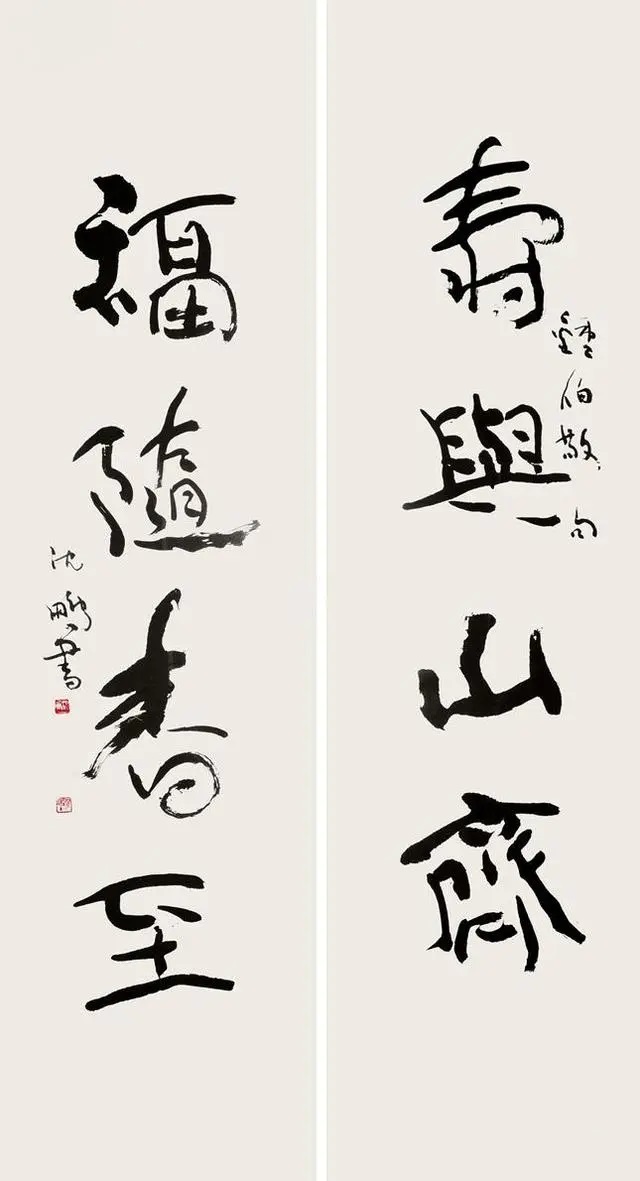 壽與山齊
鍾伯敬句
福隨春至
沈鵬書